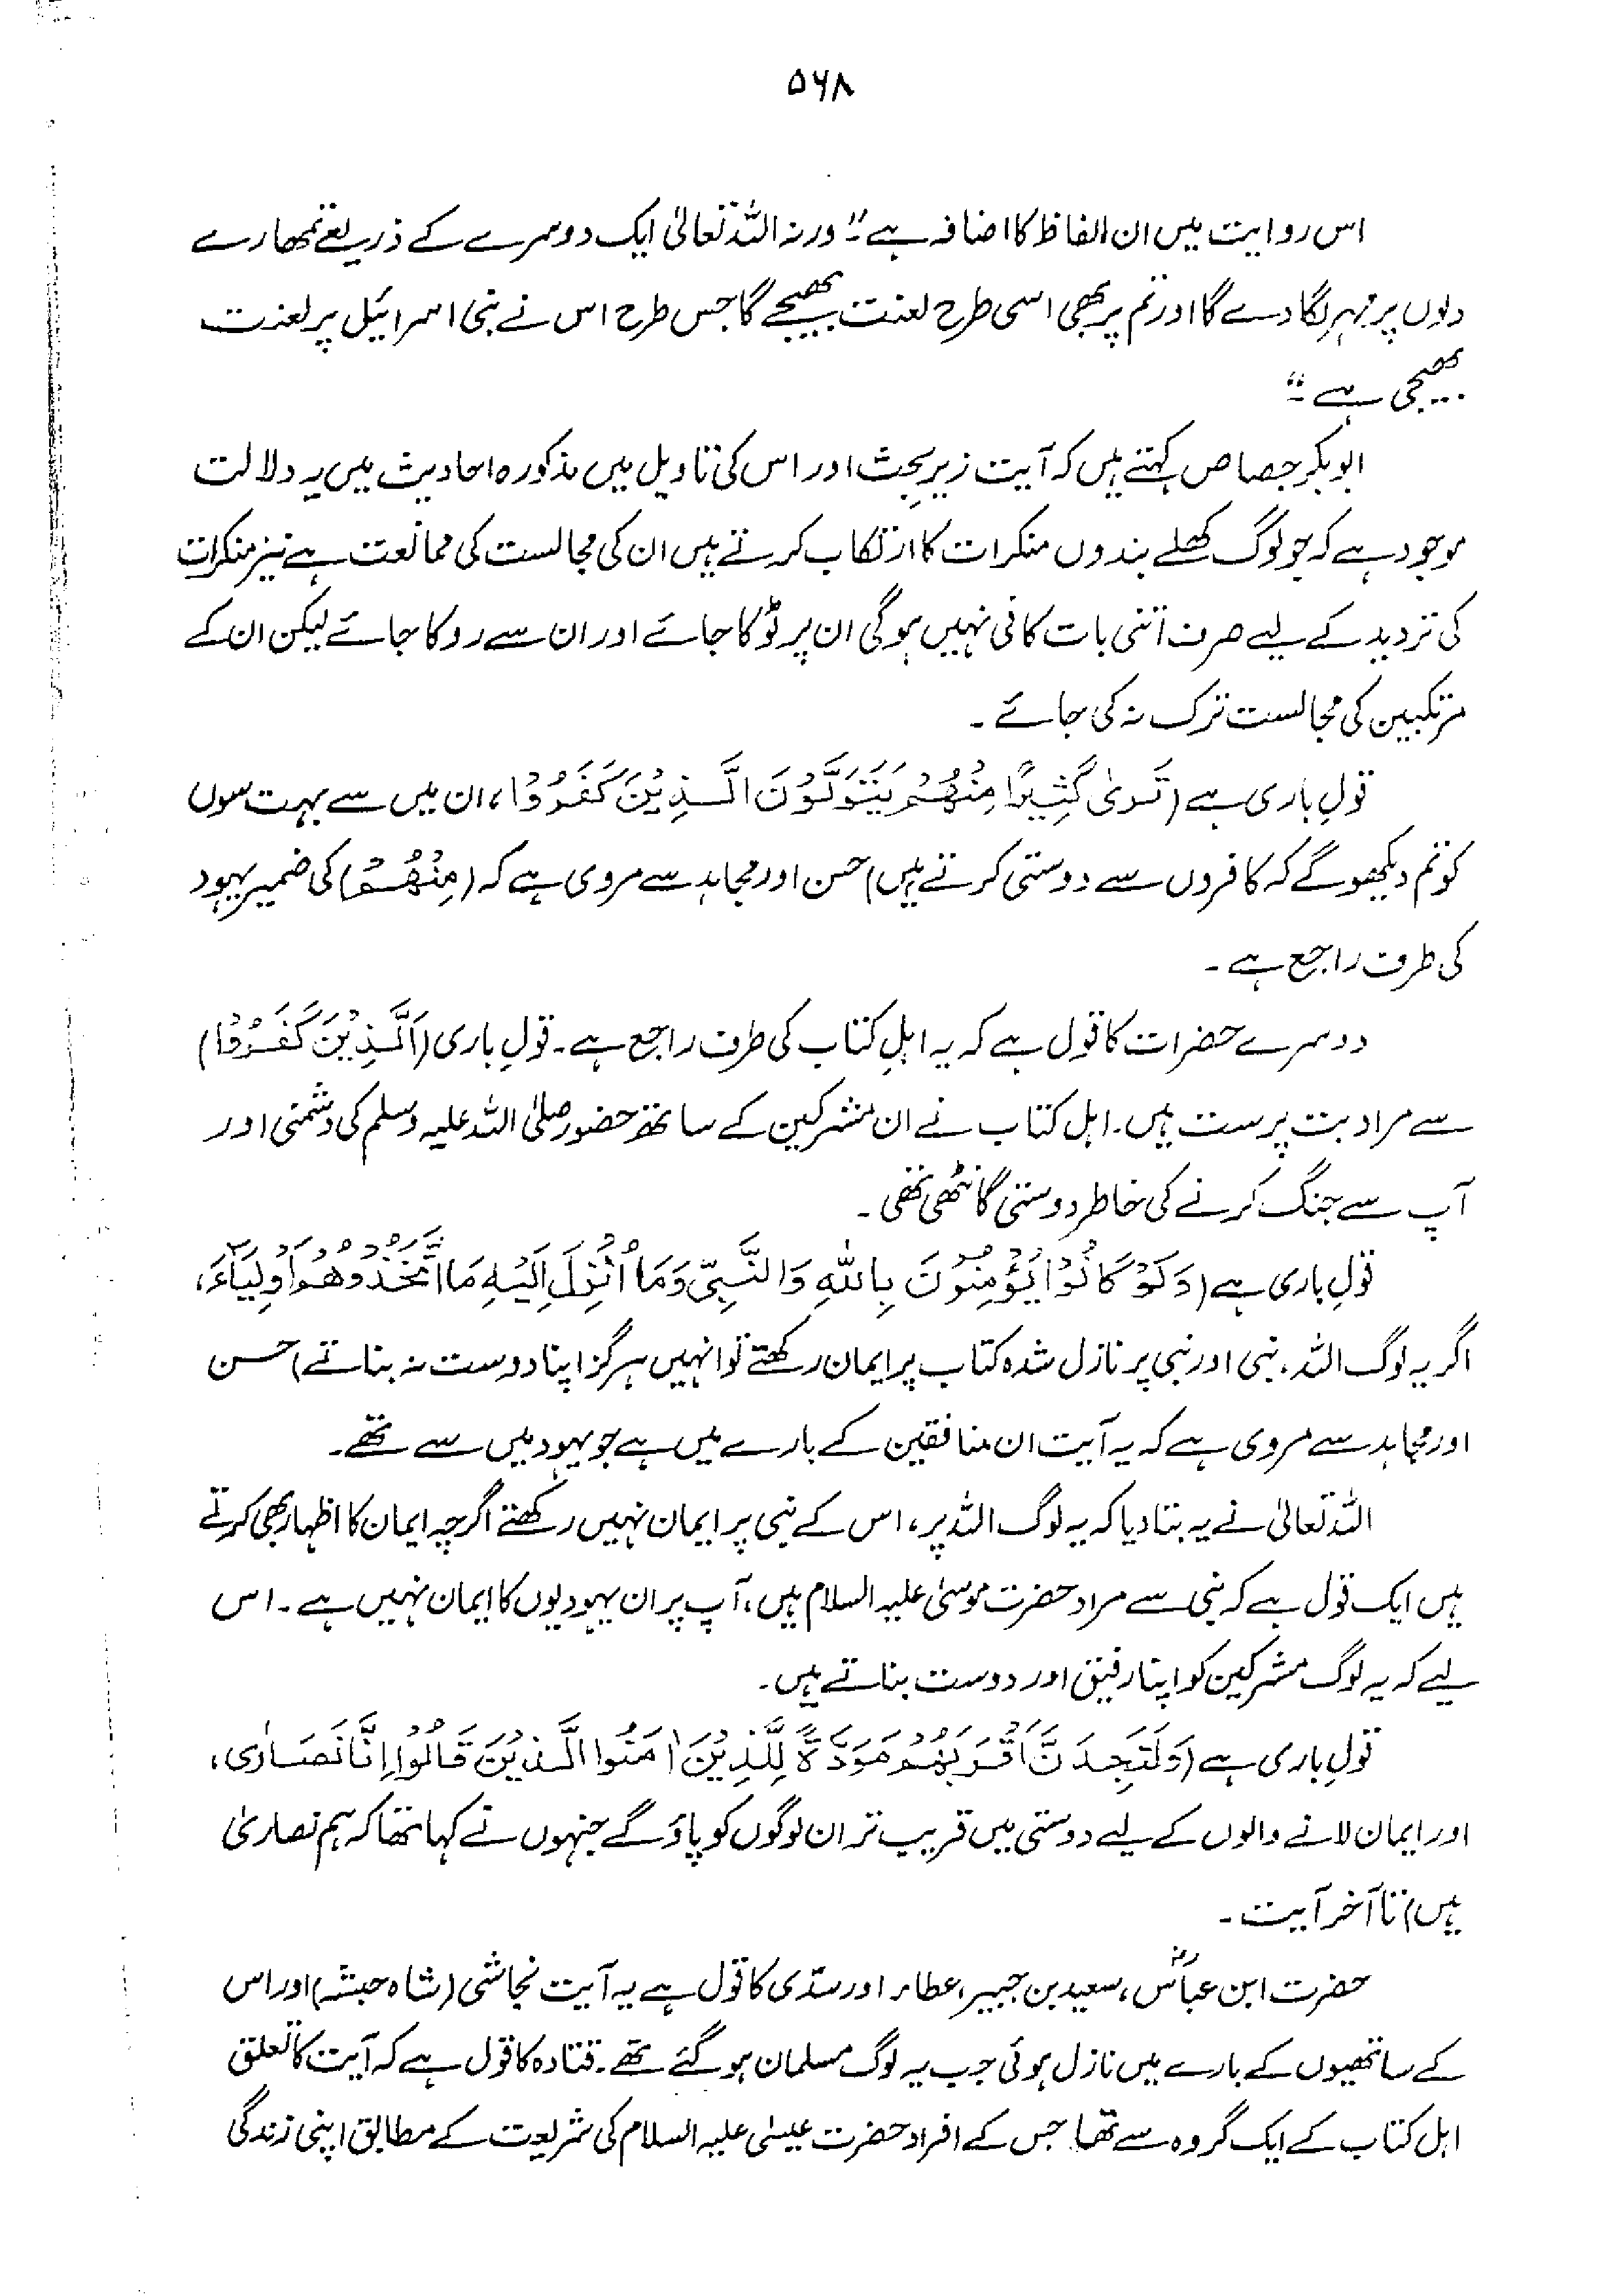 ۵۶۸
اس روایت میں ان الفاظ کا اضافہ ہے "ورنہ اللہ تعالیٰ ایک دوسرے کے ذریعے تمھارے
دلوں پر مہر لگا دے گا اور تم پر بھی اسی طرح لعنت بھیجے گا جس طرح اس نے بنی اسرائیل پر لعنت
بھیجی ہے"
ابوبکر جصاص کہتے ہیں کہ آیت زیرِ بحث اور اس کی تاویل میں مذکورہ احادیث میں یہ دلالت
موجود ہے کہ جو لوگ کھلے بندوں منکرات کا ارتکاب کرتے ہیں ان کی مجالست کی ممانعت ہے نیز منکرات
کی تردید کے لیے صرف اتنی بات کافی نہیں ہوگی ان پر ٹوکا جائے اور ان سے روکا جائے لیکن ان کے
مرتکبین کی مجالست ترک نہ کی جائے۔
قولِ باری ہے (تَرىٰ كَثِيْرًا مِنْهُمْ يَتَوَلَّوْنَ الَّذِيْنَ كَفَرُوْا، ان میں سے بہت سوں
کو تم دیکھو گے کہ کافروں سے دوستی کرتے ہیں) حسن اور مجاہد سے مروی ہے کہ (مِنْهُمْ) کی ضمیر یہود
کی طرف راجع ہے۔
دوسرے حضرات کا قول ہے کہ یہ اہلِ کتاب کی طرف راجع ہے۔ قولِ باری (اَلَّذِيْنَ كَفَرُوْا)
سے مراد بت پرست ہیں۔ اہل کتاب نے ان مشرکین کے ساتھ حضور صلی اللہ علیہ وسلم کی دشمنی اور
آپ سے جنگ کرنے کی خاطر دوستی گانٹھی تھی۔
قولِ باری ہے (وَلَوْ كَانُوْا يُؤْمِنُوْنَ بِاللّٰهِ وَالنَّبِيِّ وَمَا اُنْزِلَ اِلَيْهِ مَا اتَّخَذُوْهُمْ اَوْلِيَآءَ،
اگر یہ لوگ اللہ، نبی اور نبی پر نازل شدہ کتاب پر ایمان رکھتے تو انہیں ہرگز اپنا دوست نہ بناتے) حسن
اور مجاہد سے مروی ہے کہ یہ آیت ان منافقین کے بارے میں ہے جو یہود میں سے تھے۔
اللہ تعالیٰ نے یہ بتا دیا کہ یہ لوگ اللہ پر، اس کے نبی پر ایمان نہیں رکھتے اگرچہ ایمان کا اظہار بھی کرتے
ہیں ایک قول ہے کہ نبی سے مراد حضرت موسیٰ علیہ السلام ہیں، آپ پر ان یہودیوں کا ایمان نہیں ہے۔ اس
لیے کہ یہ لوگ مشرکین کو اپنا رفیق اور دوست بناتے ہیں۔
قولِ باری ہے (وَلَتَجِدَنَّ اَقْرَبَهُمْ مَوَدَّةً لِلَّذِيْنَ اٰمَنُوا الَّذِيْنَ قَالُوْا اِنَّا نَصَارٰى،
اور ایمان لانے والوں کے لیے دوستی میں قریب تر ان لوگوں کو پاؤ گے جنہوں نے کہا تھا کہ ہم نصاریٰ
ہیں) تا آخر آیت۔
حضرت ابن عباسؓ، سعید بن جبیر، عطاء اور سدّی کا قول ہے یہ آیت نجاشی (شاہ حبشہ) اور اس
کے ساتھیوں کے بارے میں نازل ہوئی جب یہ لوگ مسلمان ہو گئے تھے۔ قتادہ کا قول ہے کہ آیت کا تعلق
اہل کتاب کے ایک گروہ سے تھا جس کے افراد حضرت عیسیٰ علیہ السلام کی شریعت کے مطابق اپنی زندگی